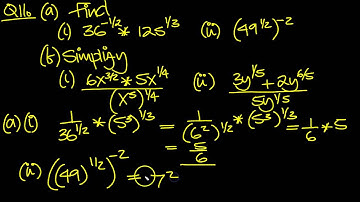 Q11. (a) Find
(i) 36^{-1/2} * 125^{1/3} (ii) (49^{1/2})^{-2}
(b) Simplify
(i) \frac{6x^{3/2} * 5x^{1/4}}{(x^5)^{1/4}} (ii) \frac{3y^{1/5} + 2y^{6/5}}{5y^{1/5}}
(a)(i) \frac{1}{36^{1/2}} * (5^3)^{1/3} = \frac{1}{(6^2)^{1/2}} * (5^3)^{1/3} = \frac{1}{6} * 5
= \frac{5}{6}
(ii) ((49)^{1/2})^{-2} = 7^2